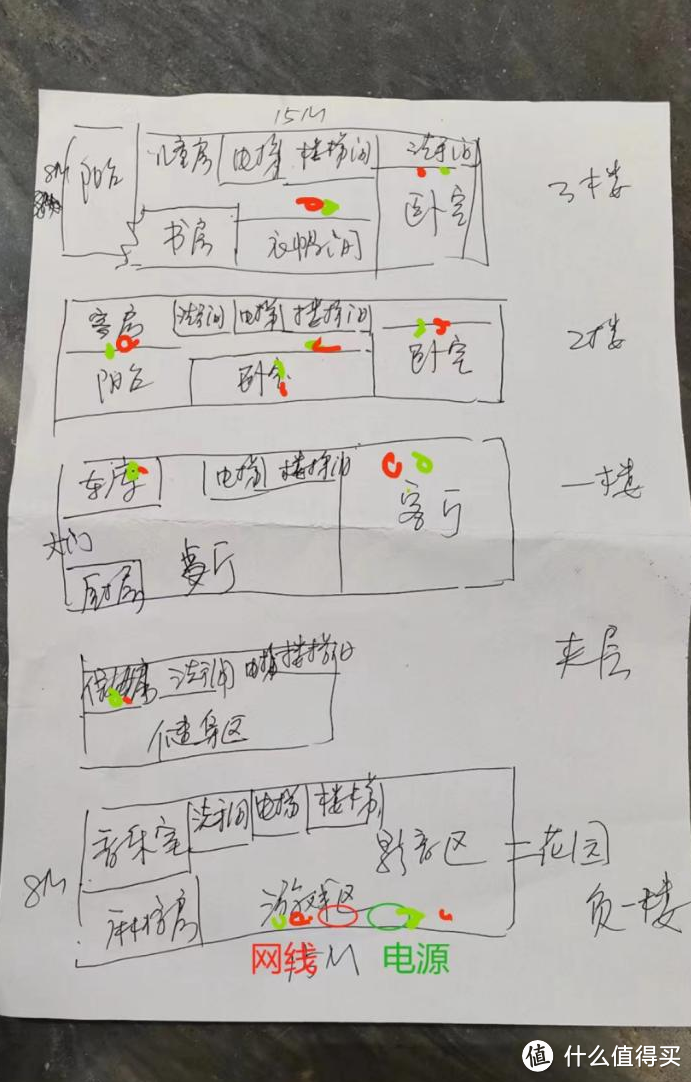 15M
8M
阳台
儿童房 电梯 楼梯间 洗手间
书房 衣帽间 卧室
3楼
客房 洗手间 电梯 楼梯间
阳台 卧室 卧室
2楼
车库 电梯 楼梯间
客厅
一楼
大门
厨房 餐厅
夹层
保姆房 洗手间 电梯 楼梯间
健身区
音乐室 洗手间 电梯 楼梯
影音区 = 花园
8M
游戏区
负一楼
网线 15M 电源
值 什么值得买